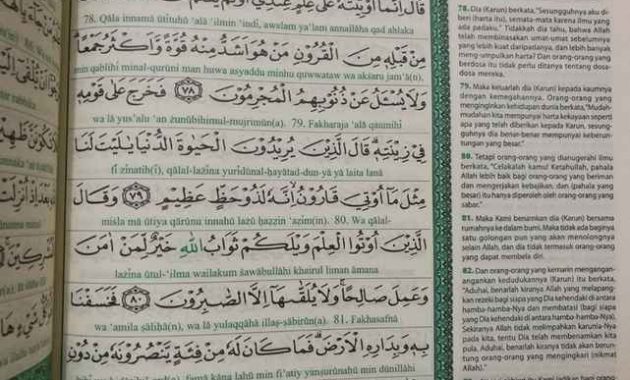 قَالَ اِنَّمَآ اُوْتِيْتُهٗ عَلٰى عِلْمٍ عِنْدِيْ اَوَلَمْ يَعْلَمْ
78. Qāla innamā ūtītuhū 'alā 'ilmin 'indī, awalam ya'lam annallāha qad ahlaka
مِنْ قَبْلِهٖ مِنَ الْقُرُوْنِ مَنْ هُوَ اَشَدُّ مِنْهُ قُوَّةً وَّاَكْثَرُ جَمْعًا
min qablihī minal-qurūni man huwa asyaddu minhu quwwataw wa akṡaru jam'ā(n),
وَلَا يُسْـَٔلُ عَنْ ذُنُوْبِهِمُ الْمُجْرِمُوْنَ ٧٨ فَخَرَجَ عَلٰى قَوْمِهٖ
wa lā yus'alu 'an żunūbihimul-mujrimūn(a). 79. Fakharaja 'alā qaumihī
فِيْ زِيْنَتِهٖ قَالَ الَّذِيْنَ يُرِيْدُوْنَ الْحَيٰوةَ الدُّنْيَا يٰلَيْتَ لَنَا
fī zīnatih(ī), qālal-lażīna yurīdūnal-ḥayātad-dun-yā yā laita lanā
مِثْلَ مَآ اُوْتِيَ قَارُوْنُ اِنَّهٗ لَذُوْ حَظٍّ عَظِيْمٍ ٧٩ وَقَالَ
miṡla mā ūtiya qārūna innahū lażū ḥaẓẓin 'aẓīm(in). 80. Wa qālal-
الَّذِيْنَ اُوْتُوا الْعِلْمَ وَيْلَكُمْ ثَوَابُ اللّٰهِ خَيْرٌ لِّمَنْ اٰمَنَ
lażīna ūtul-'ilma wailakum ṡawābullāhi khairul liman āmana
وَعَمِلَ صَالِحًا وَلَا يُلَقّٰىهَآ اِلَّا الصّٰبِرُوْنَ ٨٠ فَخَسَفْنَا
wa 'amila ṣāliḥā(n), wa lā yulaqqāhā illaṣ-ṣābirūn(a). 81. Fakhasafnā
بِهٖ وَبِدَارِهِ الْاَرْضَ فَمَا كَانَ لَهٗ مِنْ فِئَةٍ يَّنْصُرُوْنَهٗ مِنْ دُوْنِ
famā kāna lahū min fi'atiy yanṣurūnahū min dūnillāhi
78. Dia (Karun) berkata, "Sesungguhnya aku di-
beri (harta itu), semata-mata karena ilmu yang
ada padaku." Tidakkah dia tahu, bahwa Allah
telah membinasakan umat-umat sebelumnya
yang lebih kuat daripadanya, dan lebih banyak
mengumpulkan harta? Dan orang-orang yang
berdosa itu tidak perlu ditanya tentang dosa-
dosa mereka.
79. Maka keluarlah dia (Karun) kepada kaumnya
dengan kemegahannya. Orang-orang yang
menginginkan kehidupan dunia berkata, "Mudah-
mudahan kita mempunyai harta kekayaan seperti
apa yang telah diberikan kepada Karun, sesung-
guhnya dia benar-benar mempunyai keberun-
tungan yang besar."
80. Tetapi orang-orang yang dianugerahi ilmu
berkata, "Celakalah kamu! Ketahuilah, pahala
Allah lebih baik bagi orang-orang yang beriman
dan mengerjakan kebajikan, dan (pahala yang
besar) itu hanya diperoleh oleh orang-orang yang
sabar."
81. Maka Kami benamkan dia (Karun) bersama
rumahnya ke dalam bumi. Maka tidak ada baginya
satu golongan pun yang akan menolongnya
selain Allah, dan dia tidak termasuk orang-orang
yang dapat membela diri.
82. Dan orang-orang yang kemarin mengangan-
angankan kedudukannya (Karun) itu berkata,
"Aduhai, benarlah kiranya Allah yang melapang-
kan rezeki bagi siapa yang Dia kehendaki di antara
hamba-hamba-Nya dan membatasi (bagi siapa
yang Dia kehendaki di antara hamba-hamba-Nya).
Sekiranya Allah tidak melimpahkan karunia-Nya
pada kita, tentu Dia telah membenamkan kita
pula. Aduhai, benarlah kiranya tidak akan berun-
tung orang-orang yang mengingkari (nikmat
Allah)."